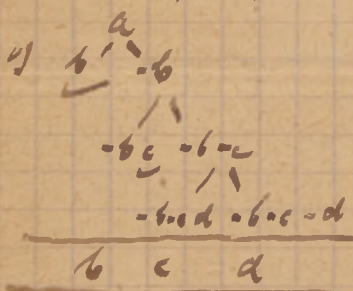 a
b -b
-bc -b-c
-b-cd -b-c-d
b c d